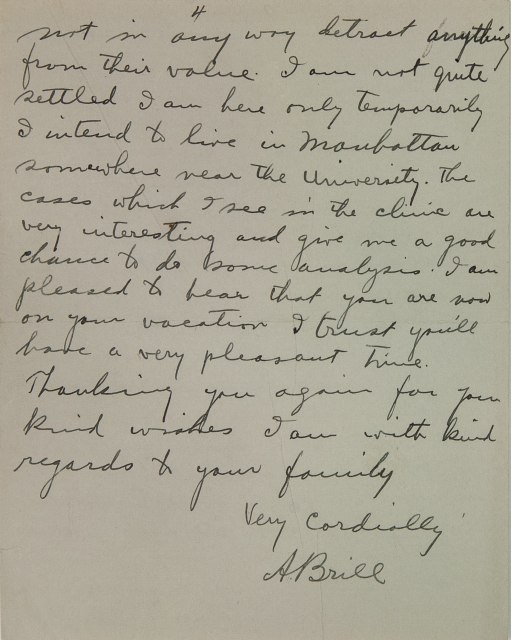 4
not in any way detract anything
from their value. I am not quite
settled I am here only temporarily
I intend to live in Manhattan
somewhere near the University. The
cases which I see in the clinic are
very interesting and give me a good
chance to do some analysis. I am
pleased to hear that you are now
on your vacation I trust you'll
have a very pleasant time.
Thanking you again for your
kind wishes I am with kind
regards to your family
Very Cordially
A. Brill